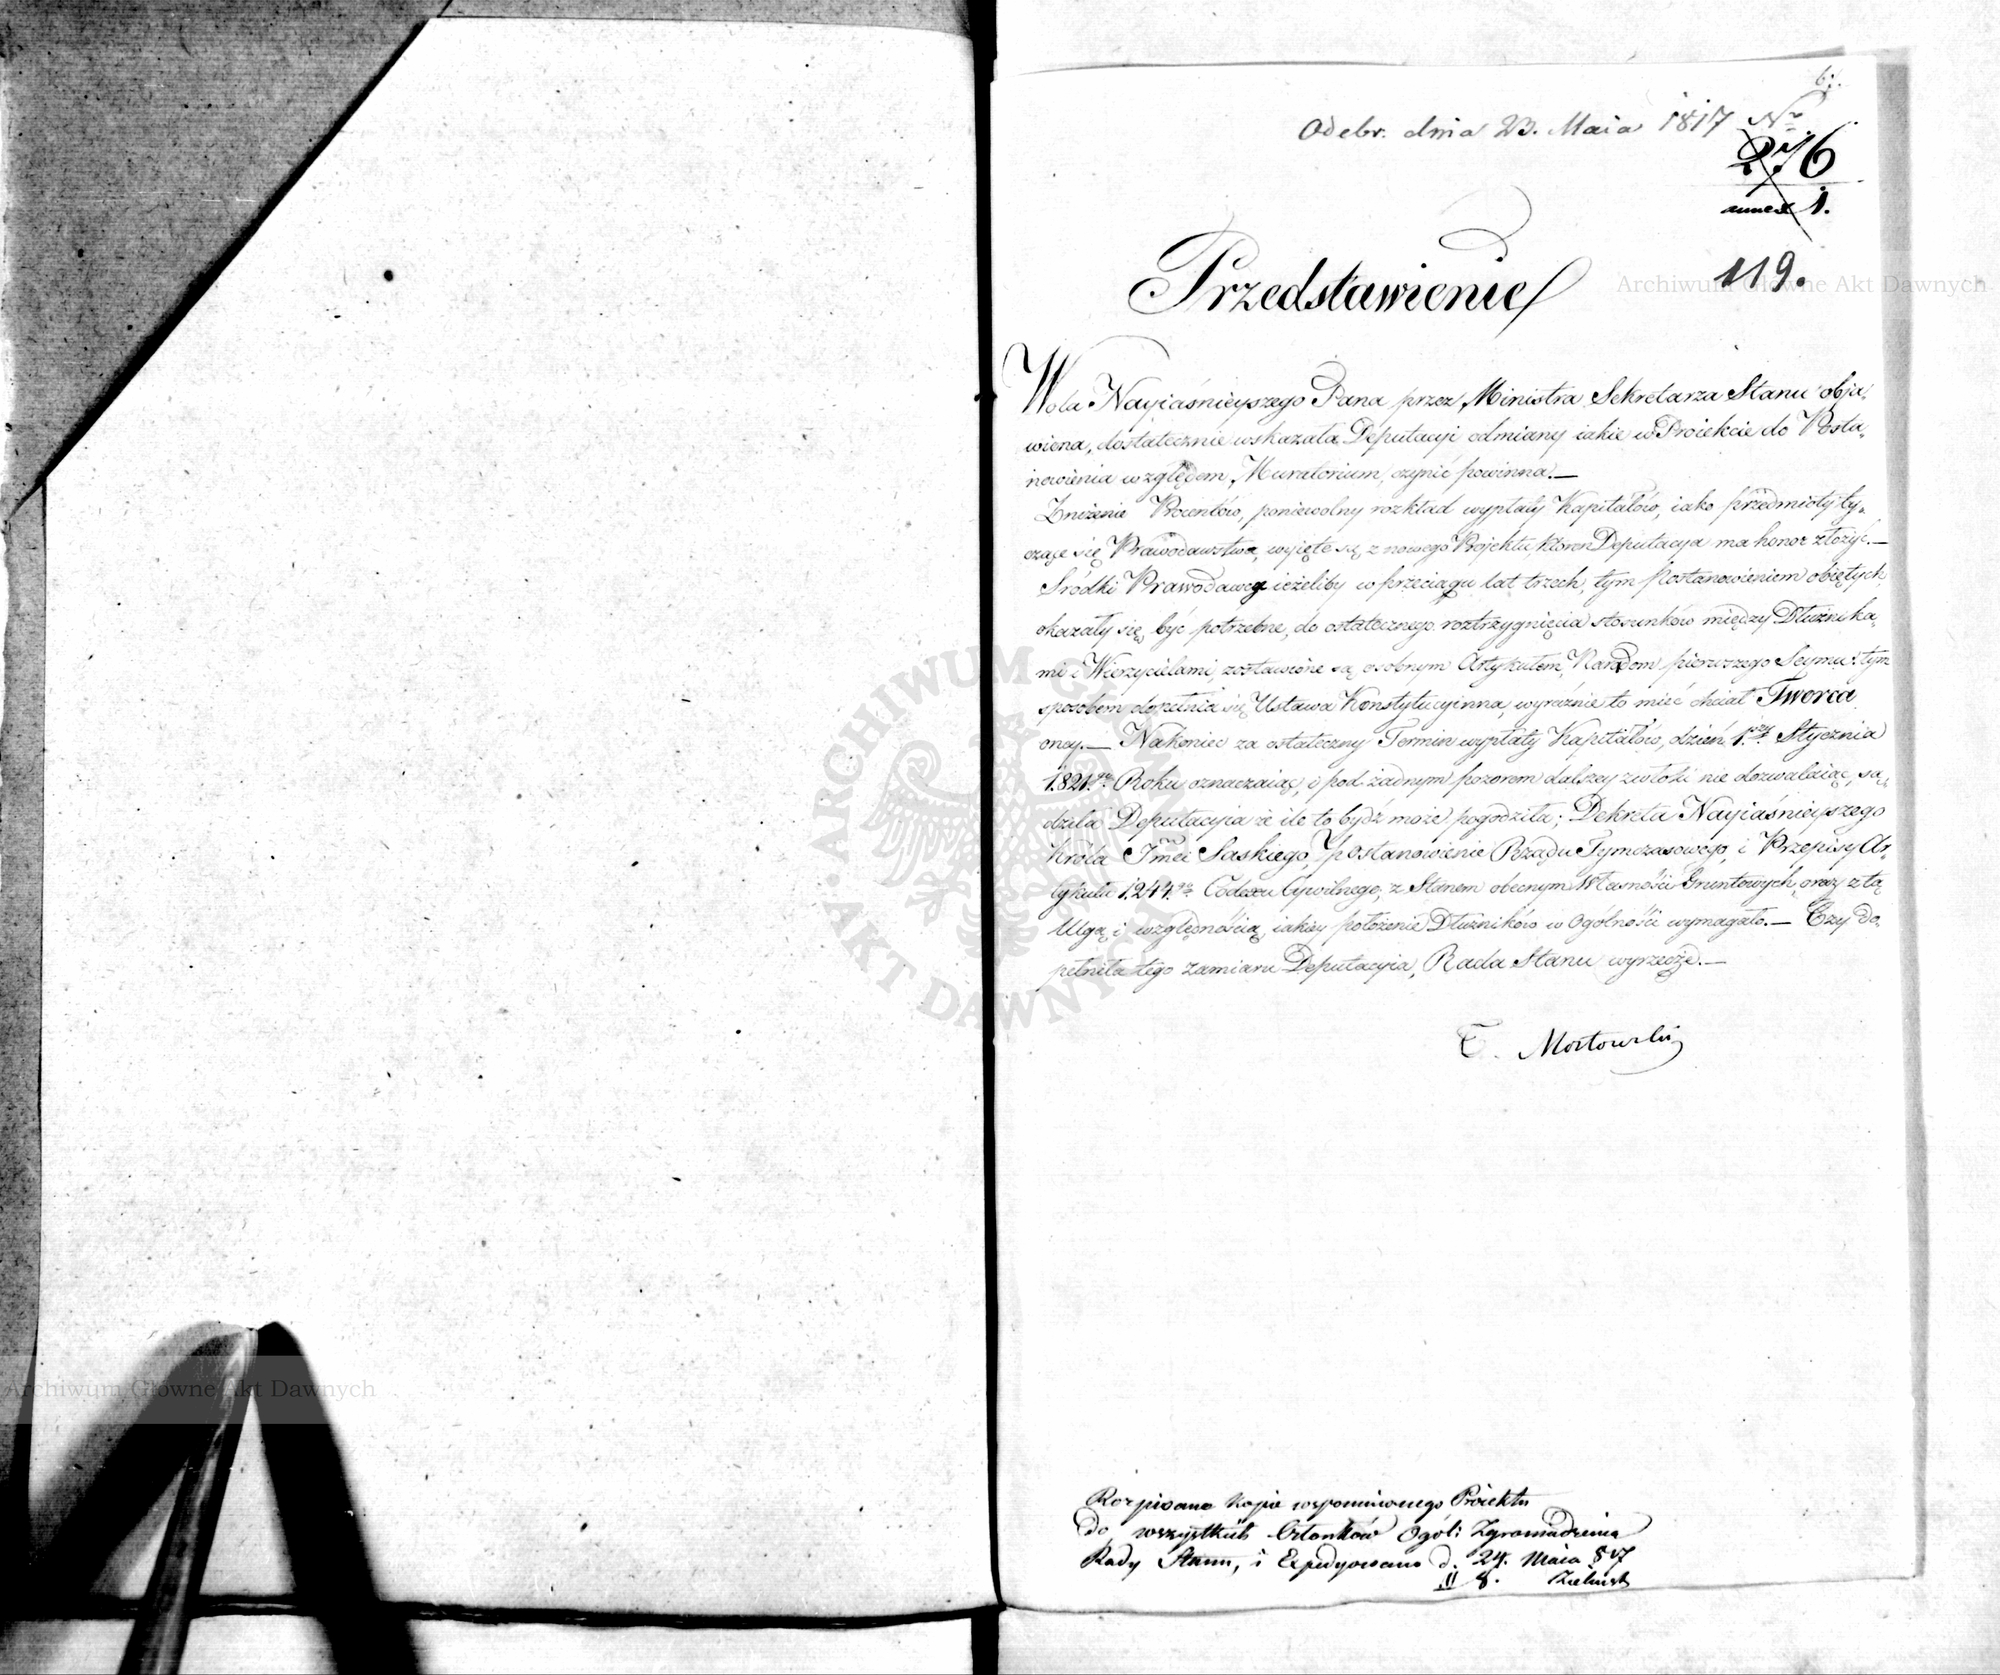 6.
Odebr. dnia 23. Maia 1817 Nr
276
annex 1.
119.
Przedstawienie
Wola Nayiaśnieyszego Pana przez Ministra Sekretarza Stanu obja-
wiena, dostatecznie wskazała Deputacyi odmiany iakie w Proiekcie do Posta-
nowienia względem Muratorium, czynić powinna.—
Zniżenie Procentów, poniewolny rozkład wypłaty Kapitałów, iako przedmioty ty-
czące się Prawodawstwa, wyięte są z nowego Projektu, ktoren Deputacya ma honor złożyć.—
Śródki Prawodawcze ieżeliby w przeciągu lat trzech, tym Postanowieniem obiętych
okazały się być potrzebne, do ostatecznego roztrzygnięcia stosunków między Dłużnika-
mi i Wierzycielami, zostawione są osobnym Artykułem, Naradom pierwszego Seymu: tym
sposobem dopełnia się Ustawa Konstytucyinna, wyraźnie to mieć chciał Tworca
oney.— Nakoniec za ostateczny Termin wypłaty Kapitałów, dzień 1.szy Stycznia
1821.go Roku oznaczaiąc, i pod żadnym pozorem dalszey zwłoki nie dozwalaiąc, są-
dziła Deputacyia że ile to bydź może pogodziła; Dekreta Nayiaśnieyszego
Króla Jmći Saskiego, Postanowienie Rządu Tymczasowego, i Przepisy Ar-
tykułu 1244.go Codexu Cywilnego, z Stanem obecnym Własności Gruntowych, oraz z tą
Ulgą i względnością, iakiey położenie Dłużników w Ogólności wymagało.— Czy do-
pełniła tego zamiaru Deputacyia, Rada Stanu wyrzecze.—
T. Mostowski
Rozpisano kopie wspomnionego Proiektu
do wszystkich Członków Ogól: Zgromadzenia
Rady Stanu, i Expedyowano d. 24. Maia 817
Zieliński
Archiwum Główne Akt Dawnych
Archiwum Główne Akt Dawnych
ARCHIWUM GŁÓWNE AKT DAWNYCH